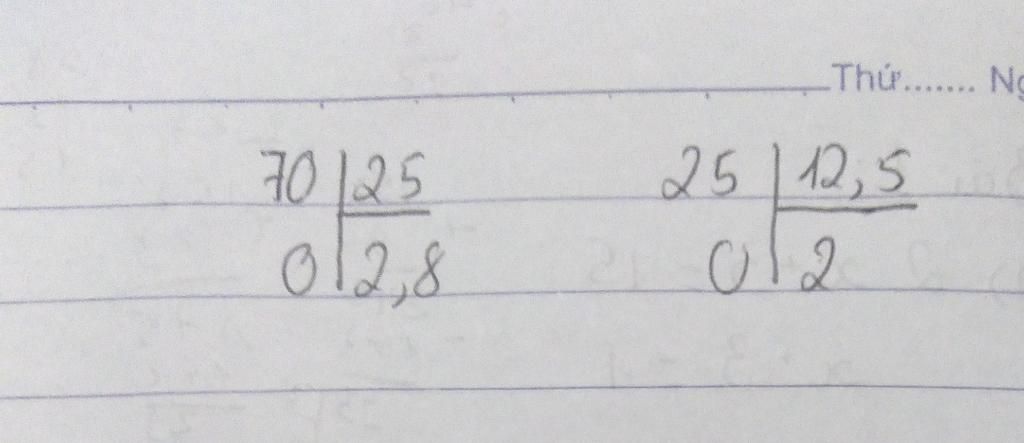 Thứ....... Ng
70 25 25 12,5
0 2,8 0 2